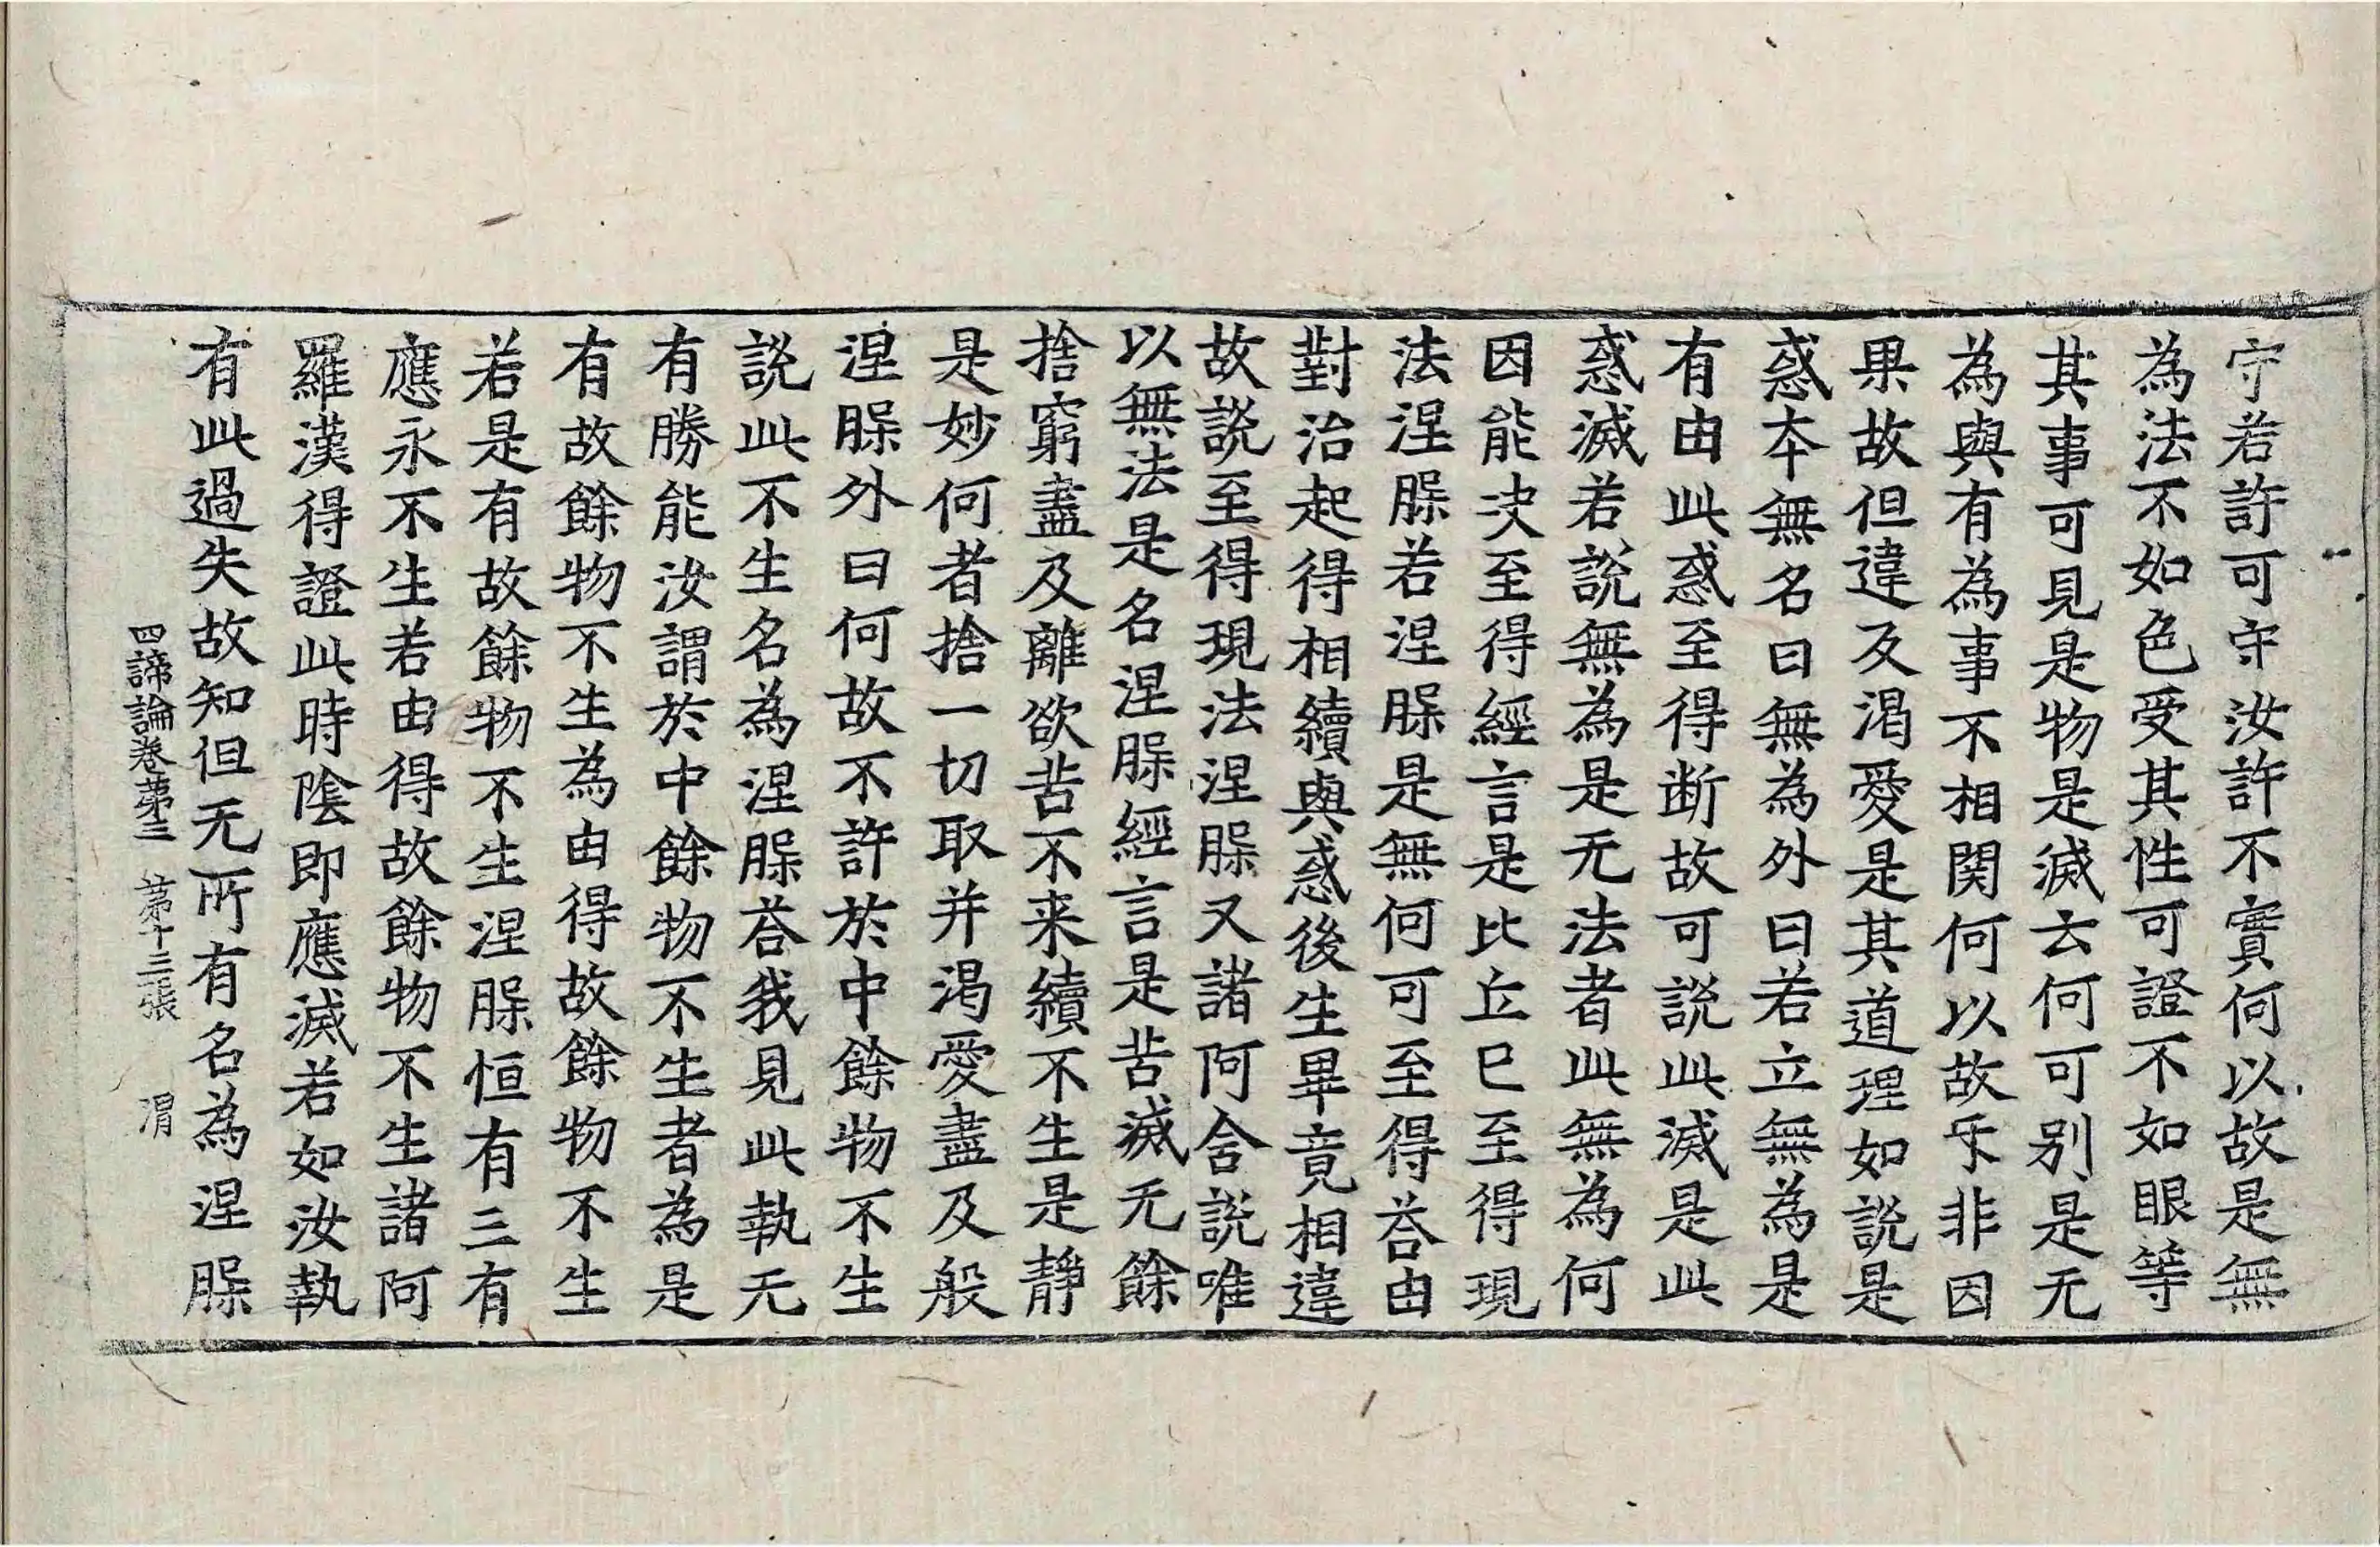 守若許可守汝許不實何以故是無
為法不如色受其性可證不如眼等
其事可見是物是滅云何可別是无
為與有為事不相関何以故乐非因
果故但違及渇愛是其道理如說是
惑本無名曰無為外曰若立無為是
有由此惑至得断故可説此滅是此
惑滅若說無為是无法者此無為何
因能决至得經言是比丘巳至得現
法涅腺若涅腺是無何可至得荅由
對治起得相續與惑後生畢竟相違
故説至得現法涅腺又諸阿含説唯
以無法是名涅腺經言是苦滅无餘
捨窮盡及離欲苦不来續不生是静
是妙何者捨一切取并渇愛盡及般
涅腺外曰何故不許於中餘物不生
説此不生名為涅腺荅我見此執无
有勝能汝謂於中餘物不生者為是
有故餘物不生為由得故餘物不生
若是有故餘物不生涅腺恒有三有
應永不生若由得故餘物不生諸阿
羅漢得證此時陰即應滅若如汝執
有此過失故知但无所有名為涅腺
四諦論卷第三 第十三張 渭